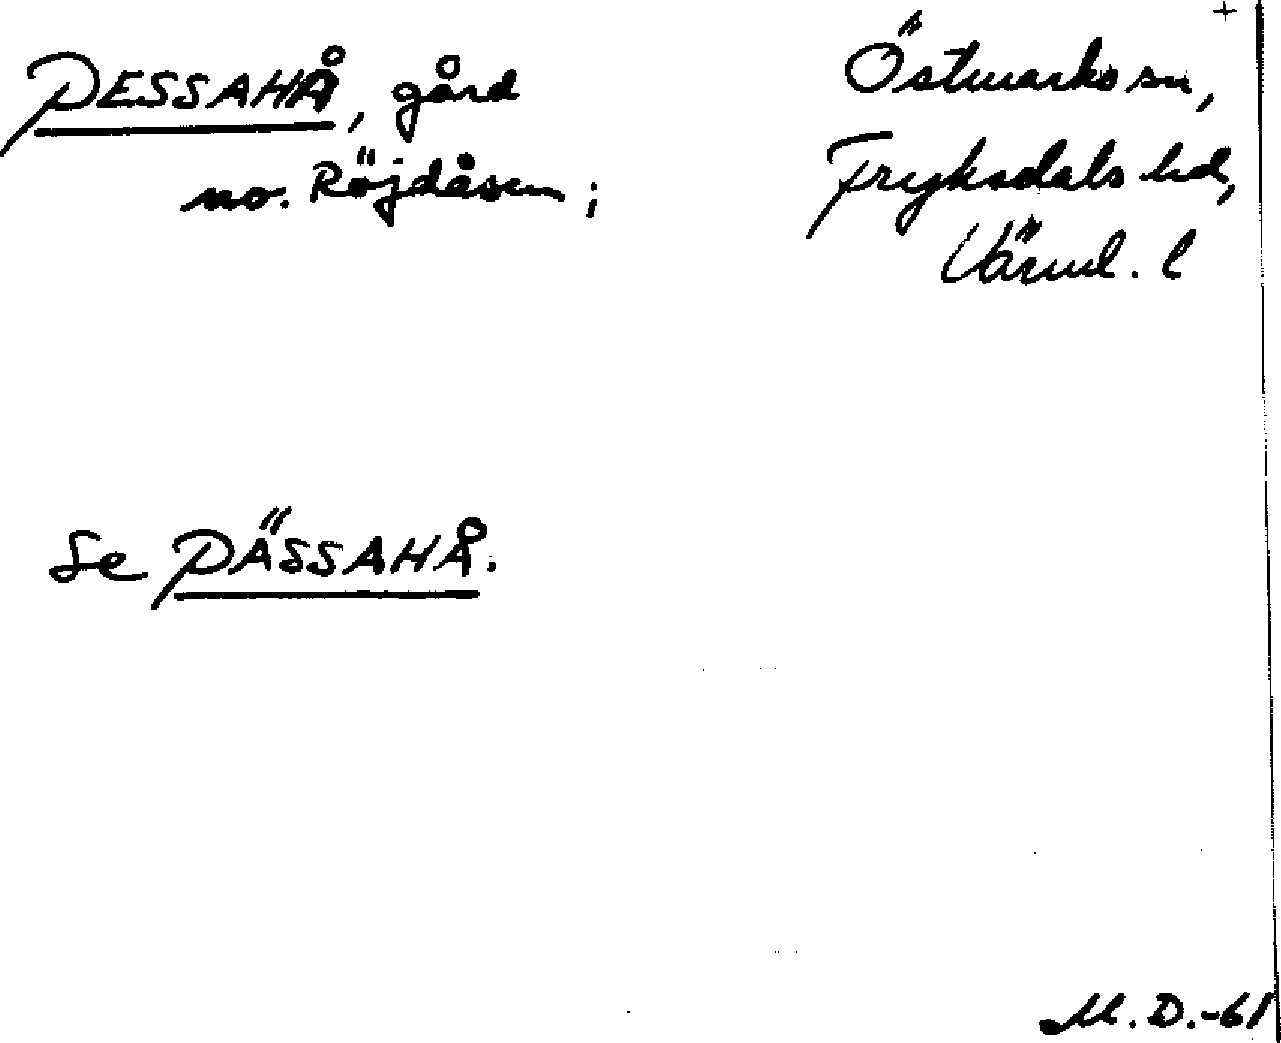 PESSAHÅ, gård
no. Röjdåsen;
Östmarks sn,
Fryksdals hd,
Värml. l
Se PÄSSAHÅ.
M.D.-61